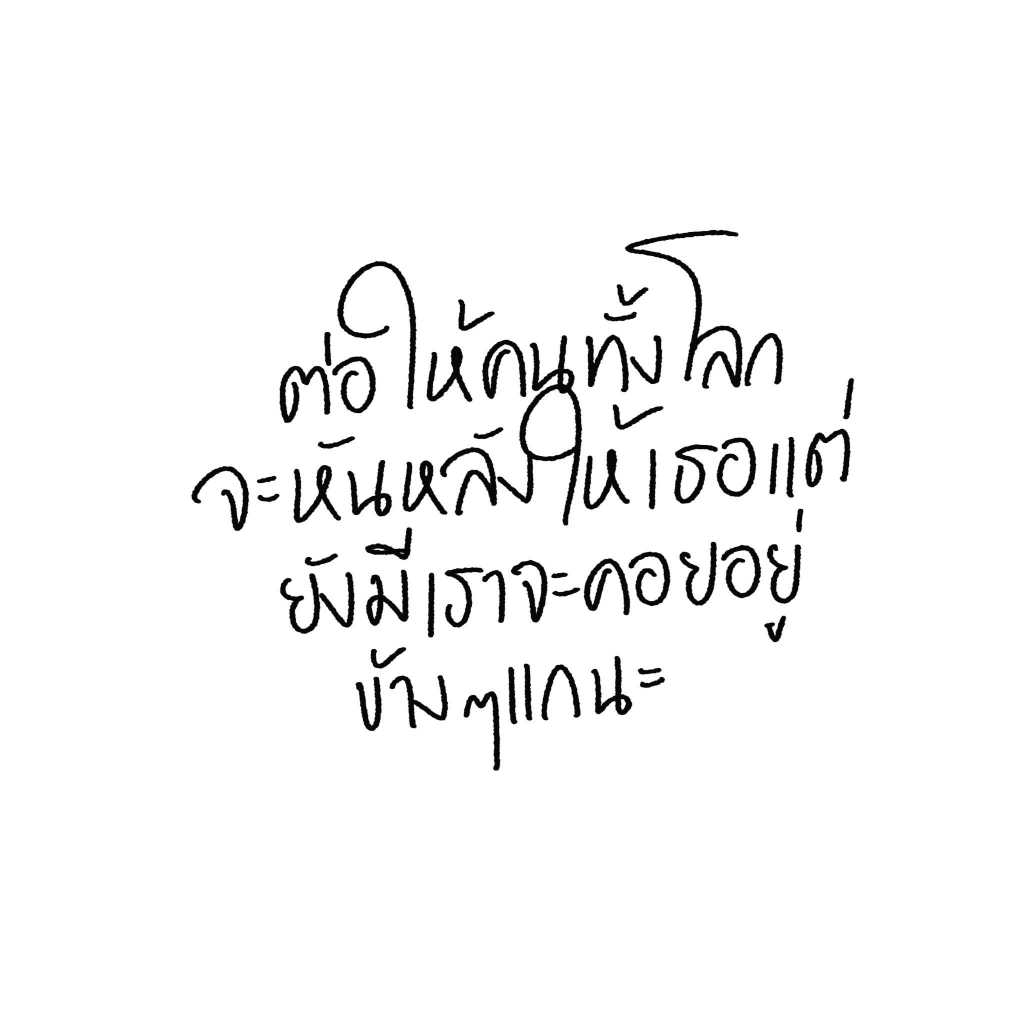 ต่อให้คนทั้งโลก
จะหันหลังให้เธอแต่
ยังมีเราจะคอยอยู่
ข้างๆแกนะ